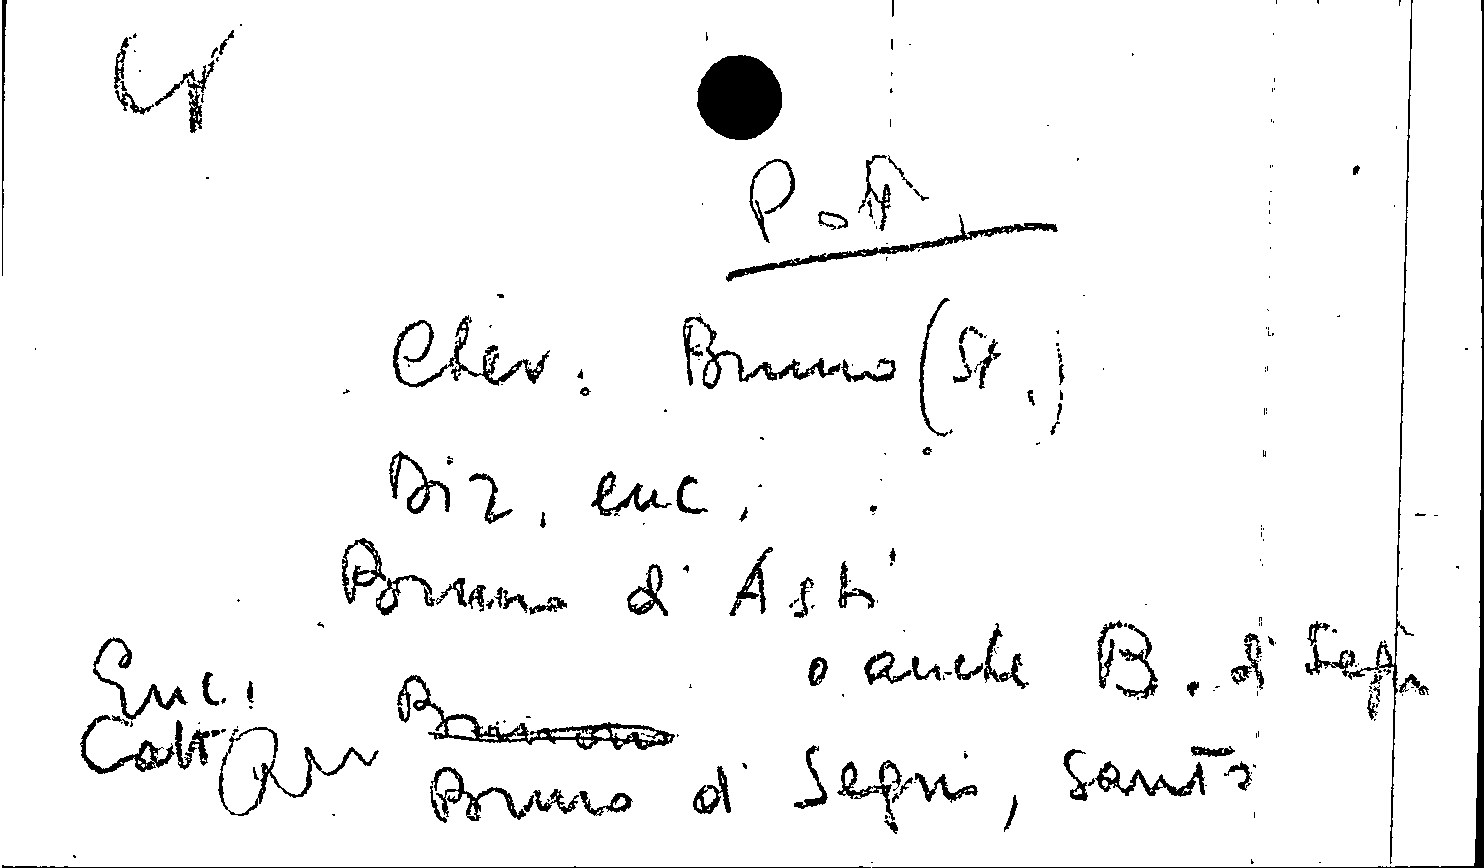 P.
Chev. Bruno (St.)
Diz. enc.
Bruno d'Asti
o anche B. di Segni
Enc.
Catt
Bruno di Segni, Santo